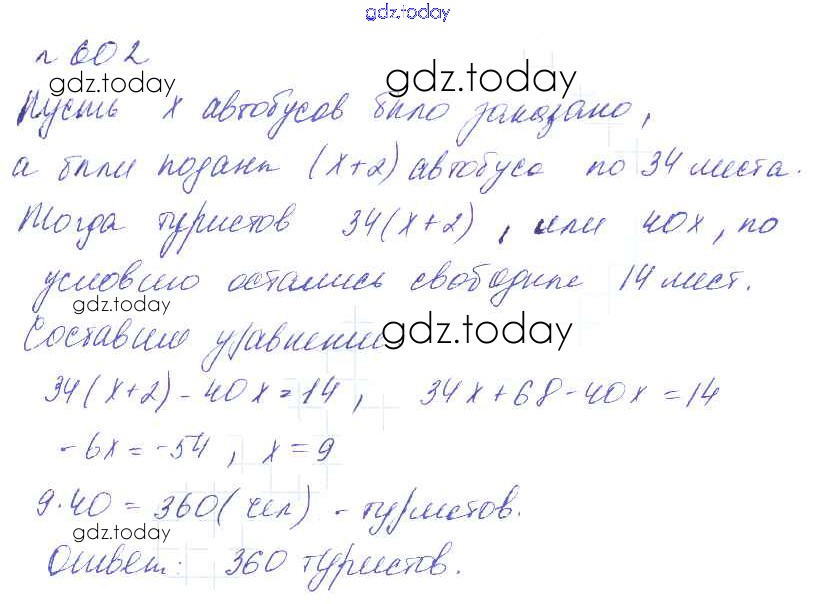 gdz.today
n 602
gdz.today gdz.today
Пусть x автобусов было заказано,
а были поданы (x+2) автобуса по 34 места.
Тогда туристов 34(x+2), или 40x, по
условию остались свободные 14 мест.
gdz.today
Составим уравнение gdz.today
34(x+2)-40x=14, 34x+68-40x=14
-6x=-54, x=9
9·40=360(чел) - туристов.
gdz.today
Ответ: 360 туристов.